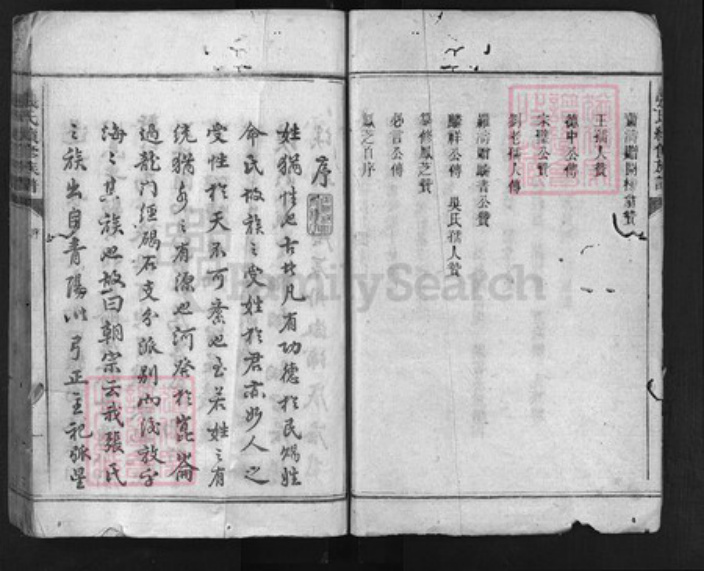 王孺人贊
德中公贊
宋璧公贊
劉老孺人傳
麟祥公傳 吳氏孺人贊
纂修鳳芝贊
必言公傳
鳳芝自序
序
姓猶性也古者凡有功德於民錫姓
命氏故族之受姓於君亦如人之
受性於天不可紊也至若姓之有
統猶水之有源也河發於崑崙
過龍門經碣石支分派別而後放乎
海海之其族也故曰朝宗云我張氏
之族出自青陽以弓正主祀弧星
FamilySearch